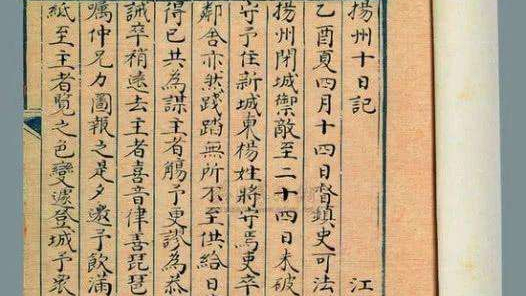 揚州十日記 江
乙酉夏四月十四日督鎮史可法
揚州閉城禦敵至二十四日未破
守予住新城東楊姓將守焉吏卒
鄰舍亦然踐踏無所不至供給日
得已共為謀主者觴予更謬為恭
誡卒稍遠去主者喜音律善琵琶
囑仲兄力圖報之是夕邀予飲滿
紙至主者覽之色變遽登城予衆